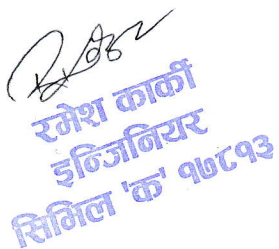 रमेश कार्की
इन्जिनियर
सिभिल 'क' १७८१३